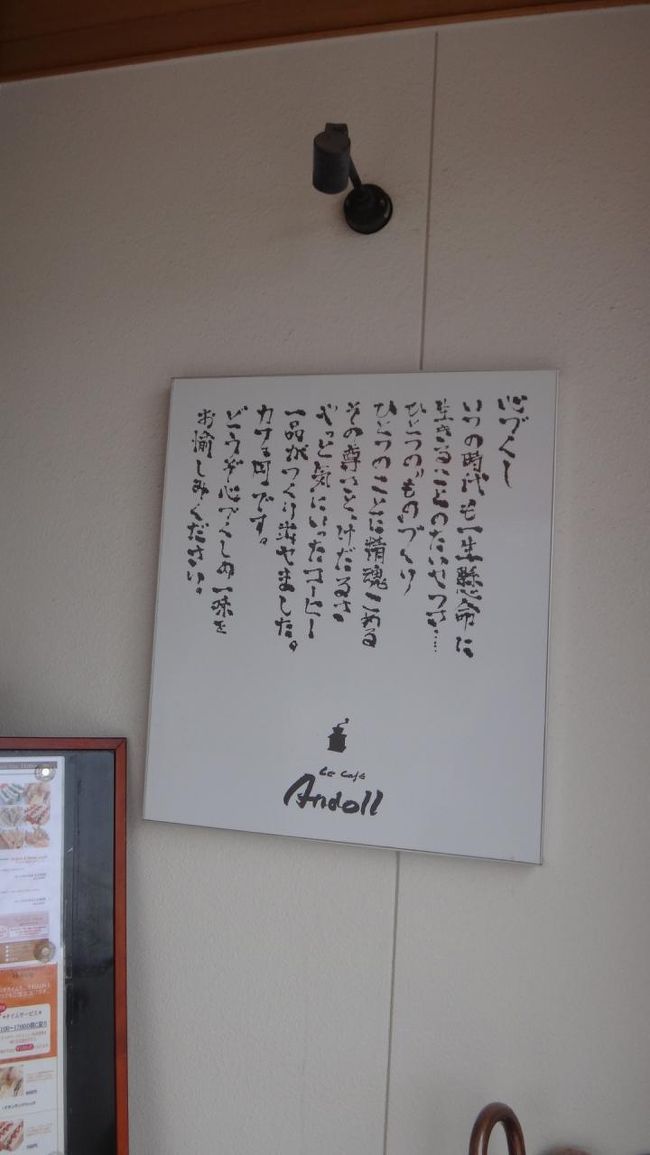 心づくし
いつの時代も一生懸命に
生きることのたいせつさ…
ひとつの"ものづくり"
ひとつのことに精魂こめる
その尊さと、けだるさ
やっと気にいったコーヒー
一品がつくり出せました。
です。
どうぞ心づくしの一味を
お愉しみください。
Le Café
Andoll
タイムサービス